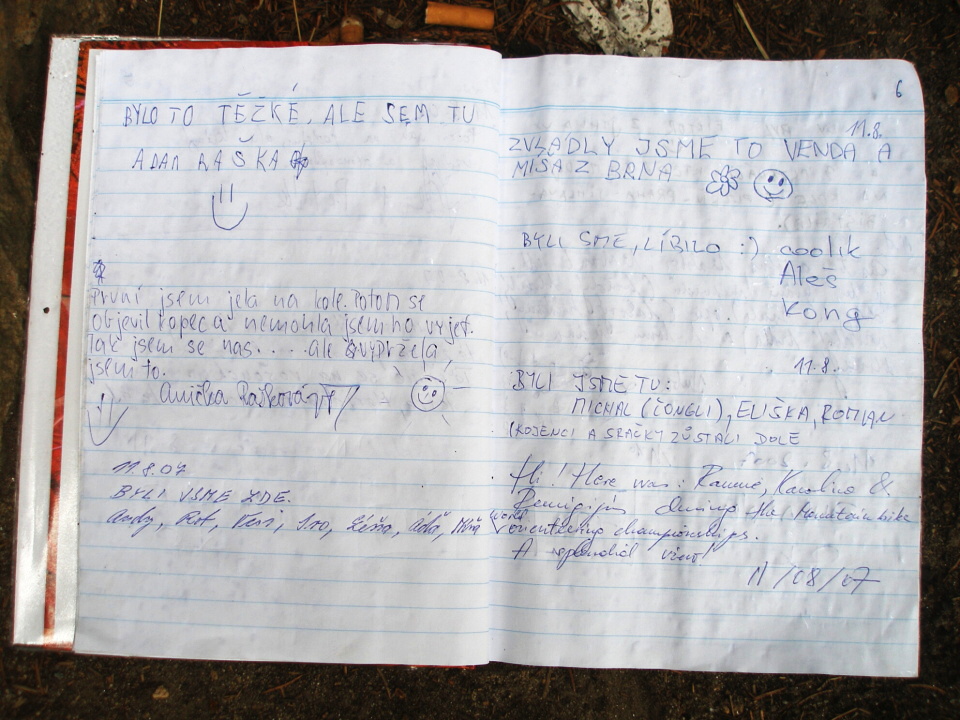 BYLO TO TĚŽKÉ, ALE SEM TU
ADAM RAŠKA
První jsem jela na kole. Potom se
objevil kopec a nemohla jsem ho vyjet.
Tak jsem se nas.... ale vydržela
jsem to.
Anička Rašková
11.8.07
BYLI JSME ZDE.
Andy,
6
11.8.
ZVLÁDLY JSME TO VENDA A
MISA Z BRNA
BYLI SME, LÍBILO :) coolik
Aleš
Kong
11.8.
BYLI JSME TU:
MICHAL (ČONGLI), ELIŠKA, ROMAN
(KOJENCI A SRAČKY ZŮSTALI DOLE
Hi! Here was: Karolina &
Remigijus during the Mountainbike
world orienteering championships.
A splendid view!
11/08/07